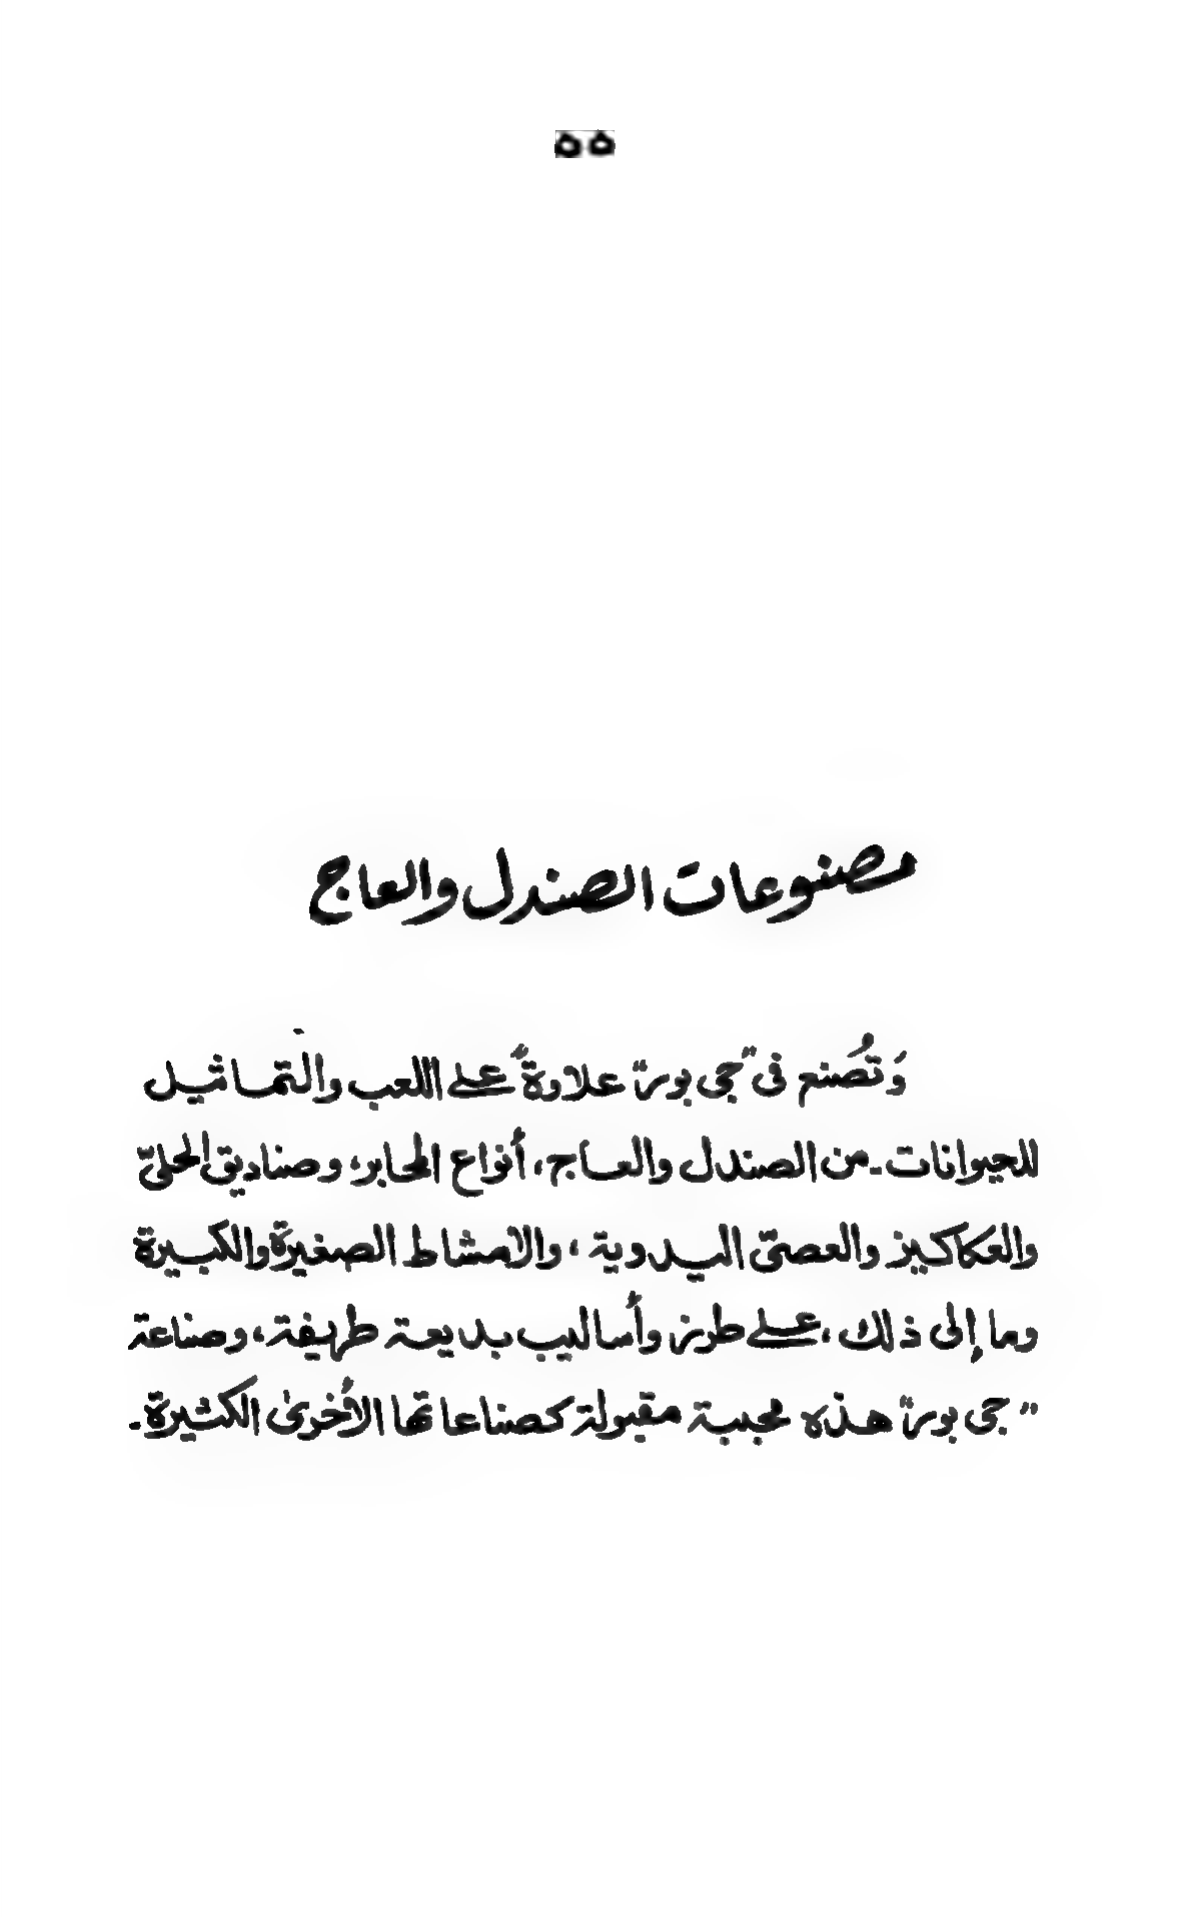 ٥٥
مصنوعات الصندل والعاج
وَتُصنع فى "جى بور" علاوةً على اللعب والتماثيل
للحيوانات - من الصندل والعاج، أنواع المحابر، وصناديق الحلىّ
والعكاكيز والعصىّ اليدوية، والامشاط الصغيرة والكبيرة
وما إلى ذلك، على طرز وأساليب بديعة طريفة، وصناعة
"جى بور" هذه محببة مقبولة كصناعاتها الأخرىٰ الكثيرة.